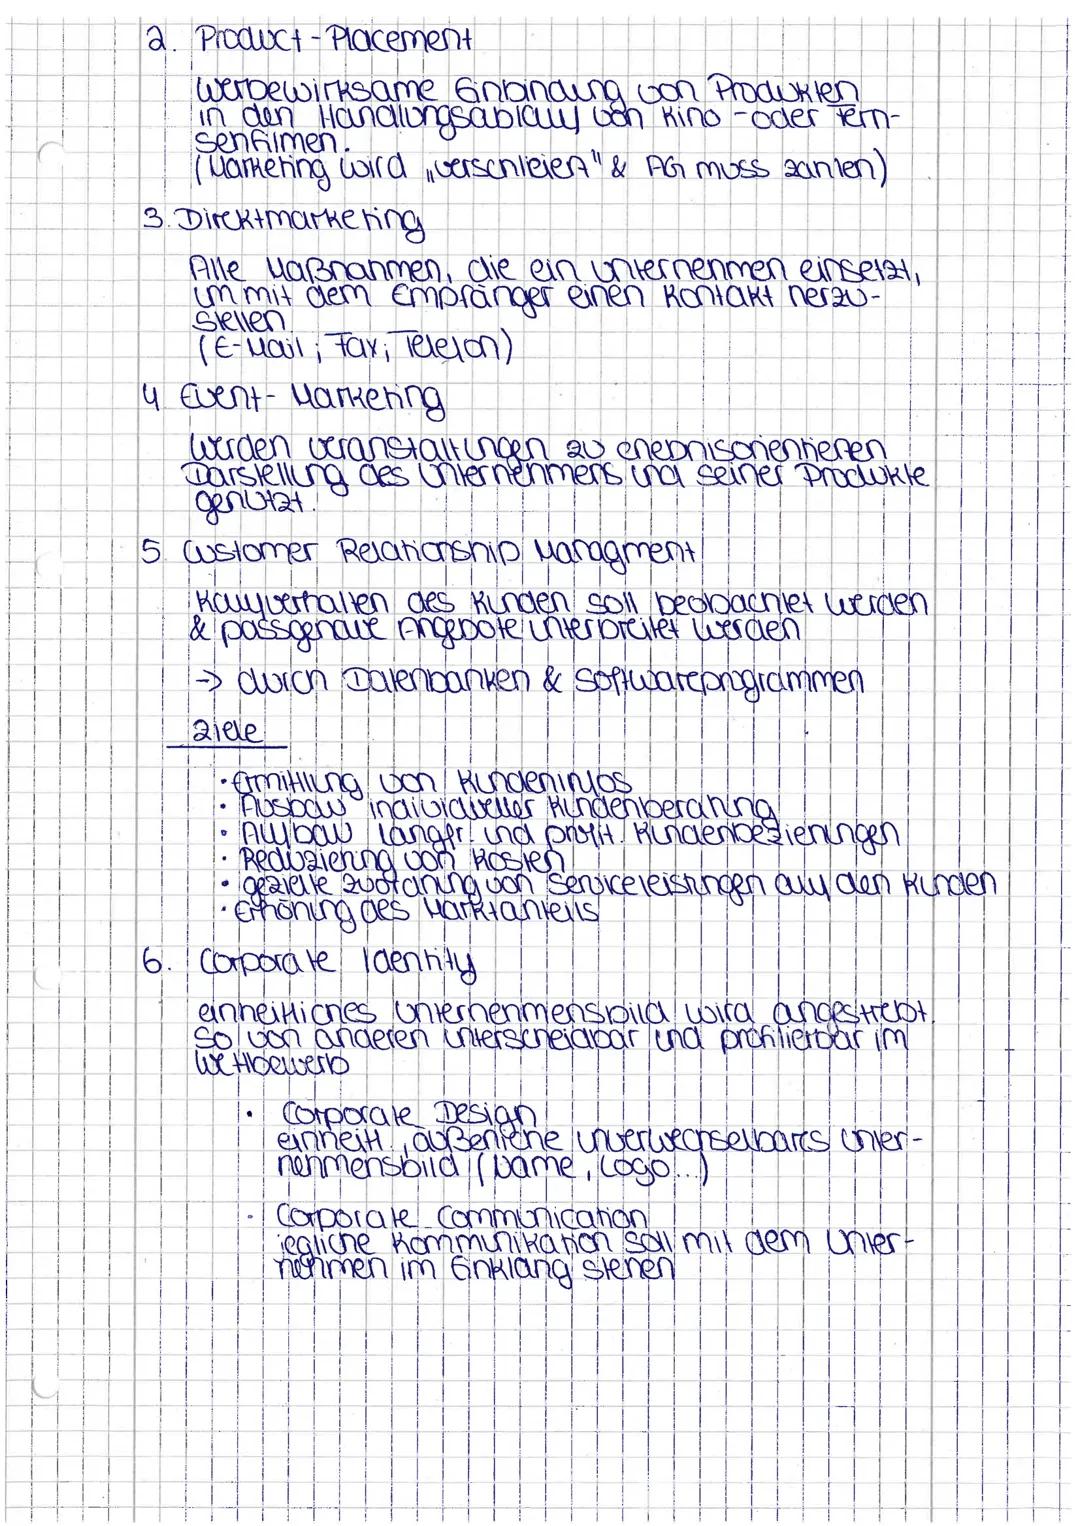 2. Product-Placement
Werbewirksame Einbindung von Produkten
in den Handlungsablauf von Kino-oder Fern-
sehfilmen.
(Marketing wird „verschleiert" & AG muss zahlen)
3. Direktmarketing
Alle Maßnahmen, die ein Unternehmen einsetzt,
um mit dem Empfänger einen Kontakt herzu-
stellen.
(E-Mail; Fax; Telefon)
4 Event-Marketing
Werden Veranstaltungen zu erlebnisorientieren
Darstellung des Unternehmens und seiner Produkte
genutzt.
5. Customer Relationship Managment
Kaufverhalten des Kunden soll beobachtet werden
& passgenaue Angebote unterbreitet werden
-> durch Datenbanken & Softwareprogrammen
Ziele
• Ermittlung von Kundeninfos
• Ausbau individueller Kundenberatung
• Aufbau langfr. und profit. Kundenbeziehungen
• Reduzierung von Kosten
• gezielte Zuordnung von Serviceleistungen auf den Kunden
• Erhöhung des Marktanteils
6. Corporate Identity
einheitliches Unternehmensbild wird angestrebt.
So von anderen unterscheidbar und profilierbar im
Wettbewerb
• Corporate Design
einheitl., äußerliche unverwechselbares Unter-
nehmensbild (Name, Logo...)
• Corporate Communication
jegliche Kommunikation soll mit dem Unter-
nehmen im Einklang stehen